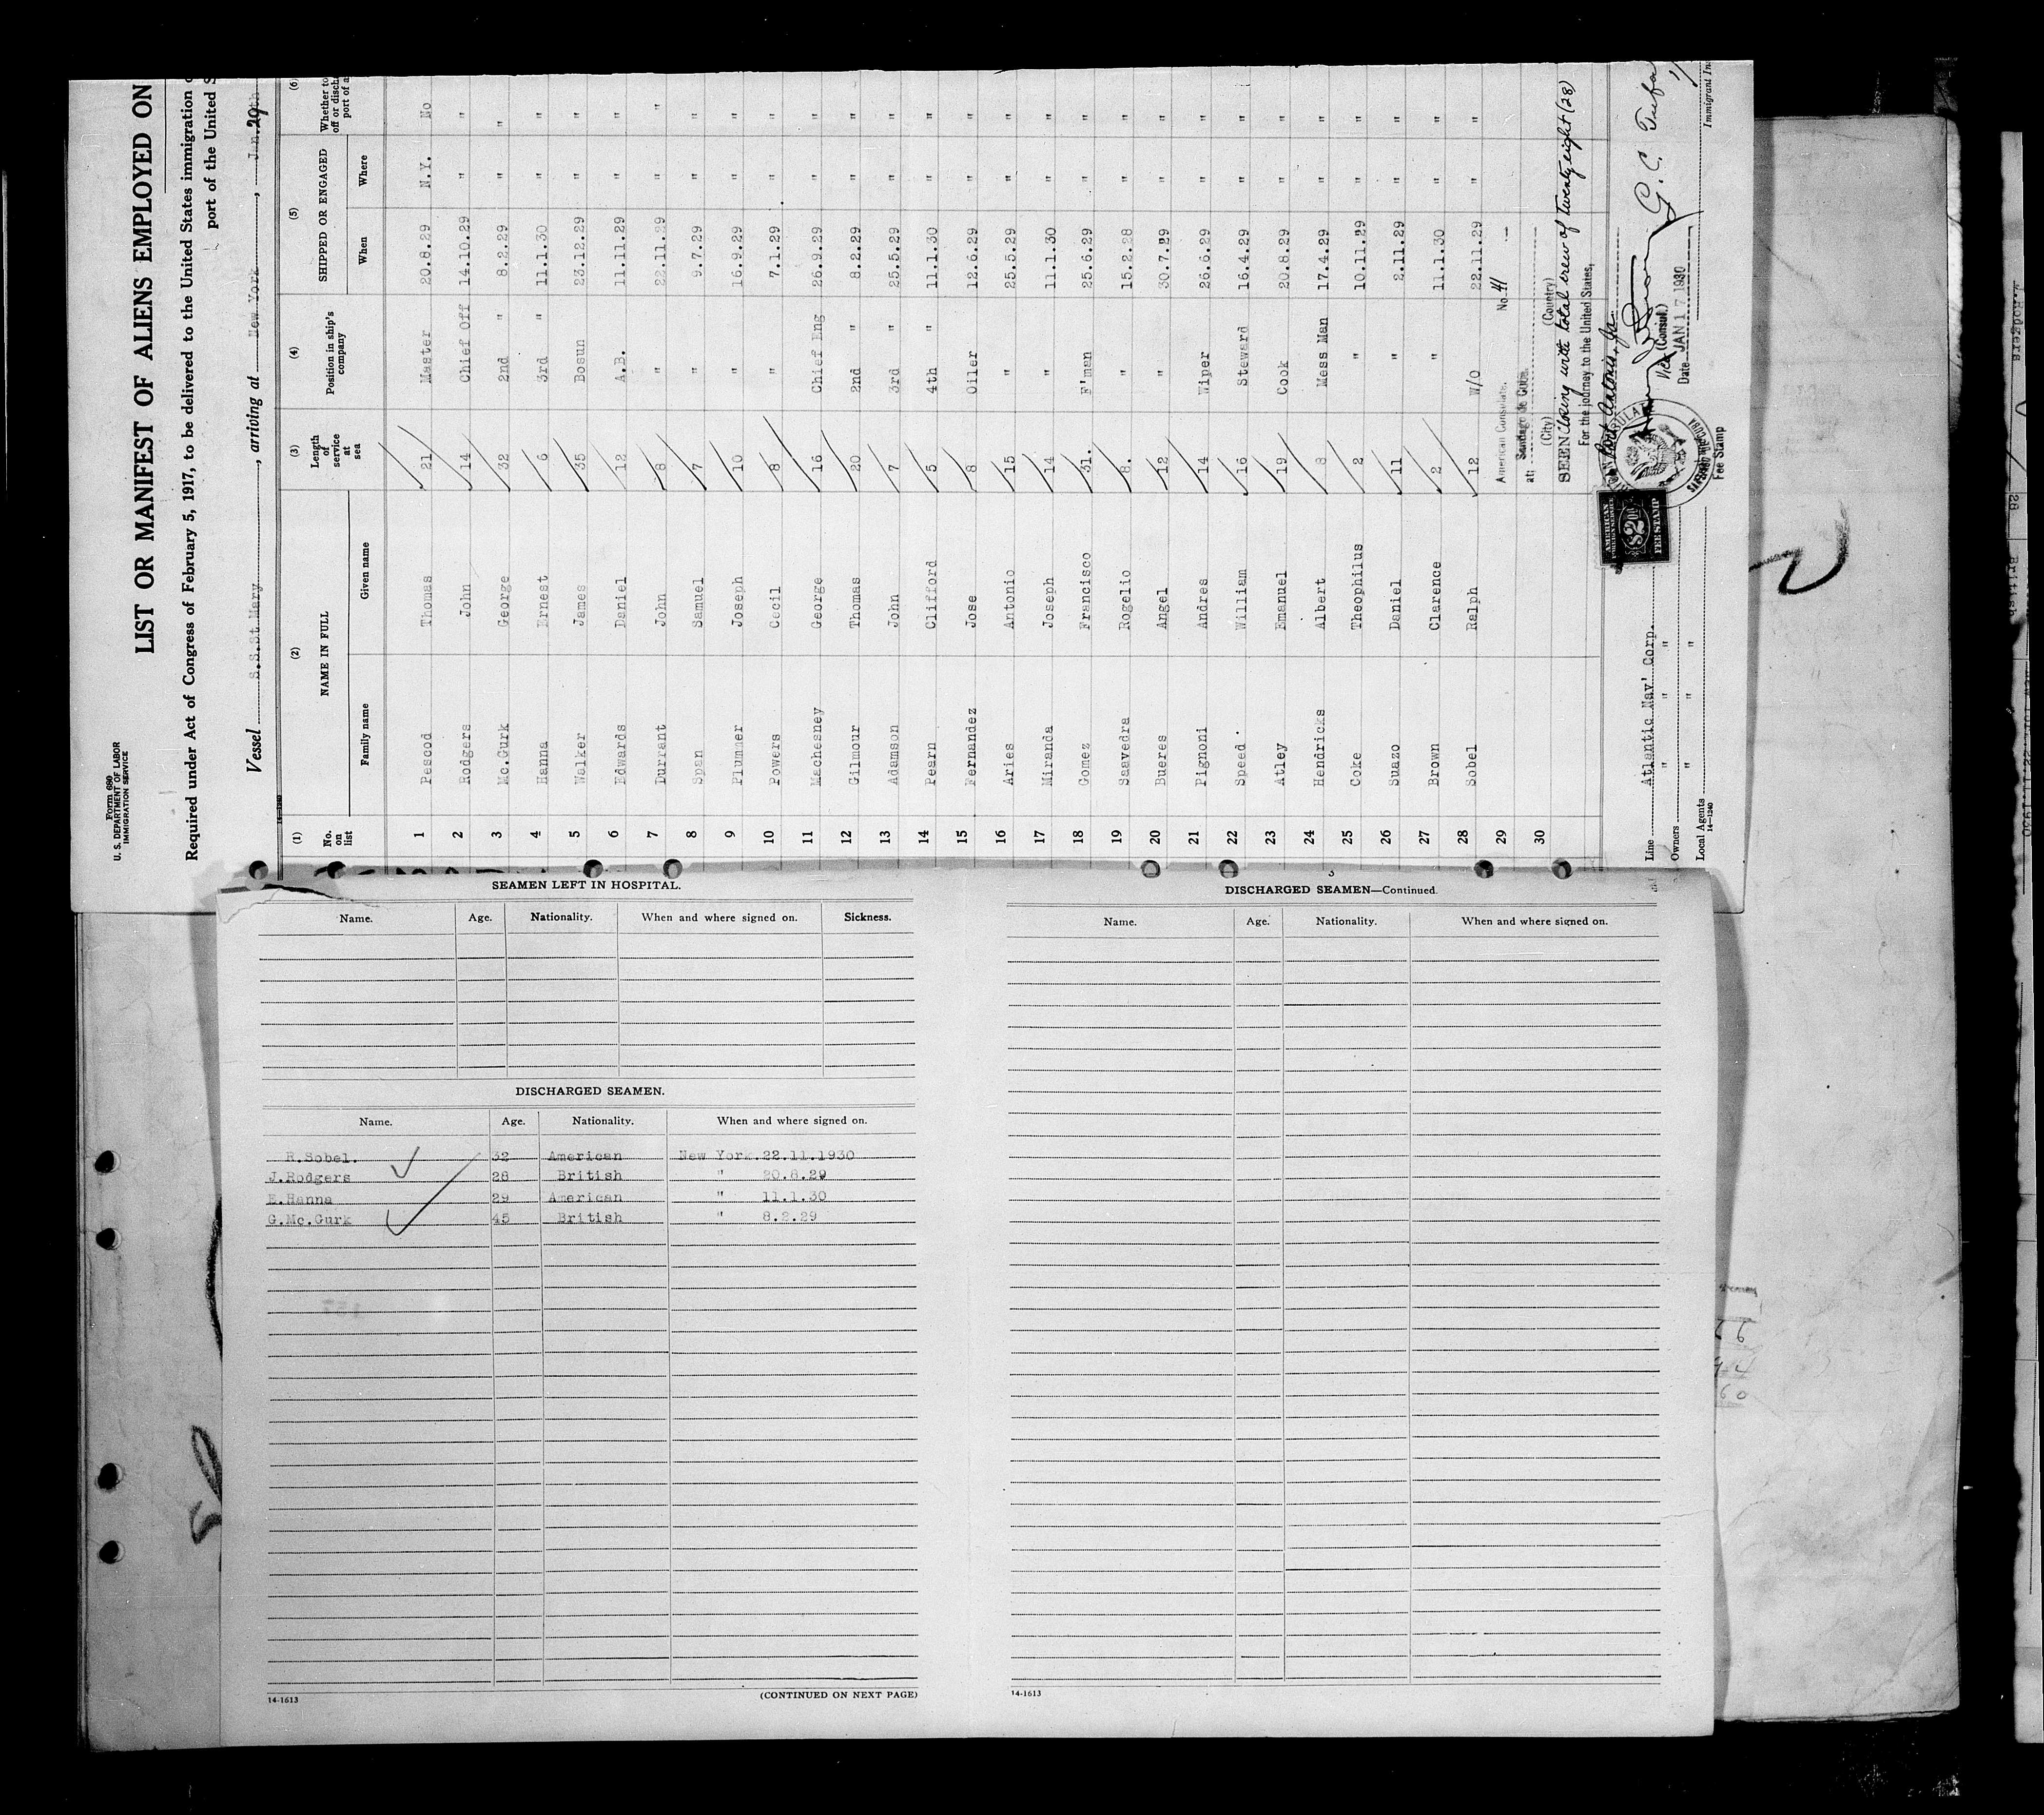 Form 680
U. S. DEPARTMENT OF LABOR
IMMIGRATION SERVICE
LIST OR MANIFEST OF ALIENS EMPLOYED ON
Required under Act of Congress of February 5, 1917, to be delivered to the United States immigration
port of the United S
Vessel S.S.St.Mary, arriving at New York, Jan.29th
(1) (2) (3) (4) (5) (6)
No. on list NAME IN FULL Length of service at sea Position in ship's company SHIPPED OR ENGAGED Whether to
off or disch
port of a
Family name Given name When Where
1 Pescod Thomas 21 Master 20.8.29 N.Y. No
2 Rodgers John 14 Chief Off 14.10.29 " "
3 Mc.Gurk George 32 2nd " 8.2.29 " "
4 Hanna Ernest 6 3rd " 11.1.30 " "
5 Walker James 35 Bosun 23.12.29 " "
6 Edwards Daniel 12 A.B. 11.11.29 " "
7 Durrant John 8 " 22.11.29 " "
8 Span Samuel 7 " 9.7.29 " "
9 Plummer Joseph 10 " 16.9.29 " "
10 Powers Cecil 8 " 7.1.29 " "
11 Machesney George 16 Chief Eng 26.9.29 " "
12 Gilmour Thomas 20 2nd " 8.2.29 " "
13 Adamson John 7 3rd " 25.5.29 " "
14 Pearn Clifford 5 4th " 11.1.30 " "
15 Fernandez Jose 8 Oiler 12.6.29 " "
16 Aries Antonio 15 " 25.5.29 " "
17 Miranda Joseph 14 " 11.1.30 " "
18 Gomez Francisco 31. F'man 25.6.29 " "
19 Saavedra Rogelio 8. " 15.2.28 " "
20 Bueres Angel 12 " 30.7.29 " "
21 Pignoni Andres 14 Wiper 26.6.29 " "
22 Speed William 16 Steward 16.4.29 " "
23 Atley Emanuel 19 Cook 20.8.29 " "
24 Hendricks Albert 8 Mess Man 17.4.29 " "
25 Coke Theophilus 2 " 10.11.29 " "
26 Suazo Daniel 11 " 2.11.29 " "
27 Brown Clarence 2 " 11.1.30 " "
28 Sobel Ralph 12 W/O 22.11.29 " "
29
30
American Consulate. No. 41
at: Santiago de Cuba.
(City) (Country)
SEEN Closing with total crew of twenty eight (28)
For the journey to the United States,
Port Antonio, Ja.
Vice (Consul.)
Date JAN 17 1930
Fee Stamp
AMERICAN
FOREIGN SERVICE
$2.00
FEE STAMP
Line Atlantic Nav' Corp.
Owners " " "
Local Agents " " "
14-1240
G. C.
Immigrant In
SEAMEN LEFT IN HOSPITAL.
Name. Age. Nationality. When and where signed on. Sickness.
DISCHARGED SEAMEN.
Name. Age. Nationality. When and where signed on.
R.Sobel. 32 American New York.22.11.1930
J.Rodgers 28 British " 20.8.29
E.Hanna 29 American " 11.1.30
G.Mc.Gurk 45 British " 8.2.29
14-1613 (CONTINUED ON NEXT PAGE)
3
DISCHARGED SEAMEN—Continued.
Name. Age. Nationality. When and where signed on.
14-1613